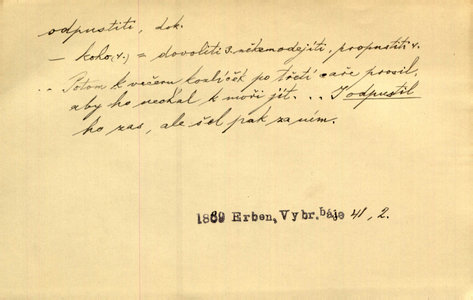 odpustiti, dok.
— koho (4.) = dovoliti 3. někomu odejíti, propustiti 4.
.. Potom k večeru kozlíček po třetí caře prosil,
aby ho nechal k moři jít... I odpustil
ho zas, ale šel pak za ním.
1869 Erben, Vybr. báje 41, 2.